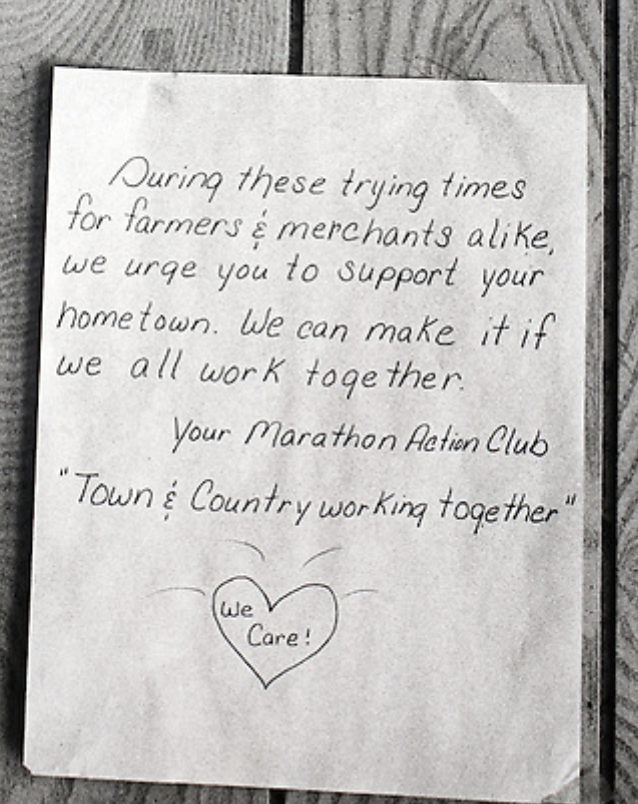 During these trying times
for farmers & merchants alike,
we urge you to support your
hometown. We can make it if
we all work together.
Your Marathon Action Club
"Town & Country working together"
We
Care!